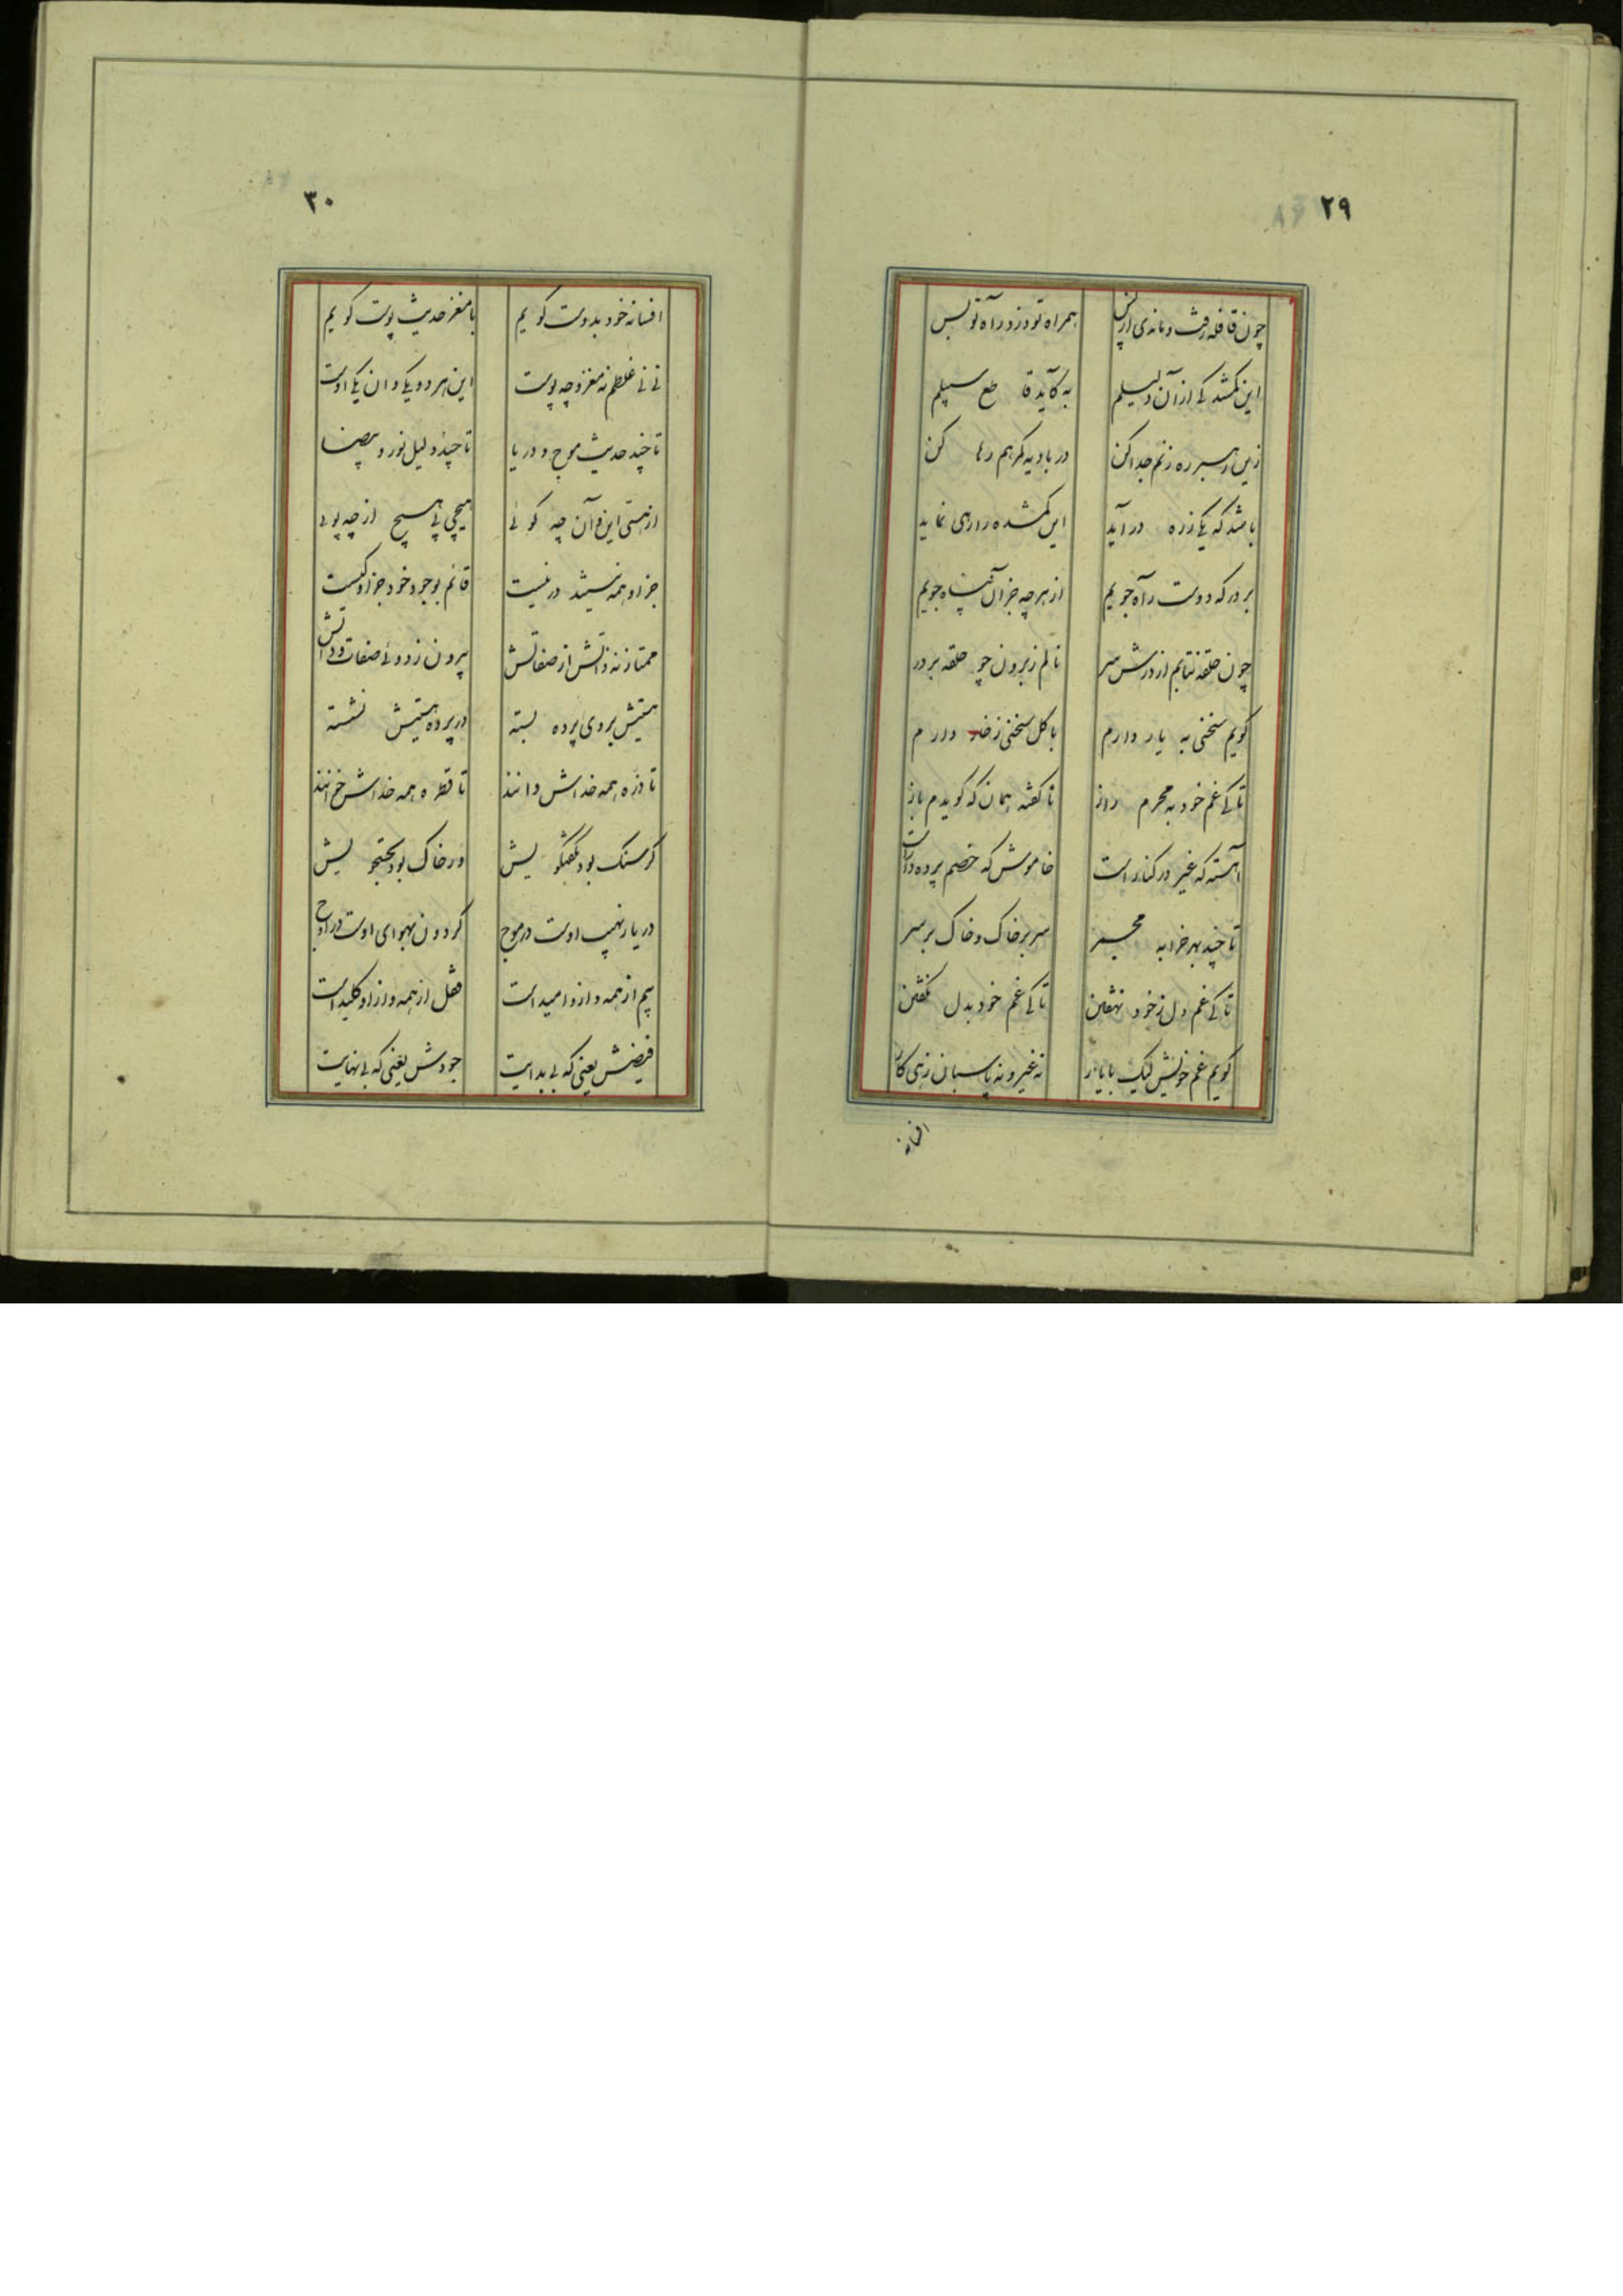 ۲۹
چون قافله رفت و ماندی از پس همراه تو دزد راه تو بس
این کمشد کی از آن دلیلم به کاید قاطع سبیلم
زین راهبر ره زنم جدا کن در بادیه کمرهم رها کن
باشد که یکی ز ره در آید این کمشده را رهی نماید
بر درکه دوست راه جویم از هر چه جز آن پناه جویم
چون حلقه نتابم از درش سر نالم ز برون چو حلقه بر در
کویم سخنی به یار دارم با کل سخنی ز خار دارم
تا کی غم خود به محرم راز ناکفته همان که کویدم باز
آهسته که غیر در کنار است خاموش که خصم پرده دار است
تا چند بهر خرابه سر بر خاک و خاک بر سر
تا کی غم دل ز خود نهفتن تا کی غم خود بدل نکفتن
کویم غم خویش لیک با یار نه غیر و نه پاسبان زهی کار
افسانه
۳۰
افسانه خود بدوست کویم با مغز حدیث پوست کویم
نی نی غلطم نه مغز و چه پوست این هر دو یکی و ان یکی اوست
تا چند حدیث موج و دریا تا چند دلیل نور و بیضا
از هستی این و آن چه کوئی هیچی پی هیچ از چه پوئی
جز او همه نیستند در نیست قائم بوجود خود جز او کیست
ممتاز نه ذاتش از صفاتش بیرون ز دوئی صفات و ذاتش
هستیش بروی پرده بسته در پرده هستیش نشسته
تا ذره همه خداش دانند تا قطره همه خداش خوانند
کر سنک بود بکفتکویش ور خاک بود بجستجویش
دریا ز نهیب اوست در موج کردون بهوای اوست در اوج
بیم از همه و از او امید است قفل از همه و از او کلید است
فیضش یعنی که بی بدایت جودش یعنی که بی نهایت